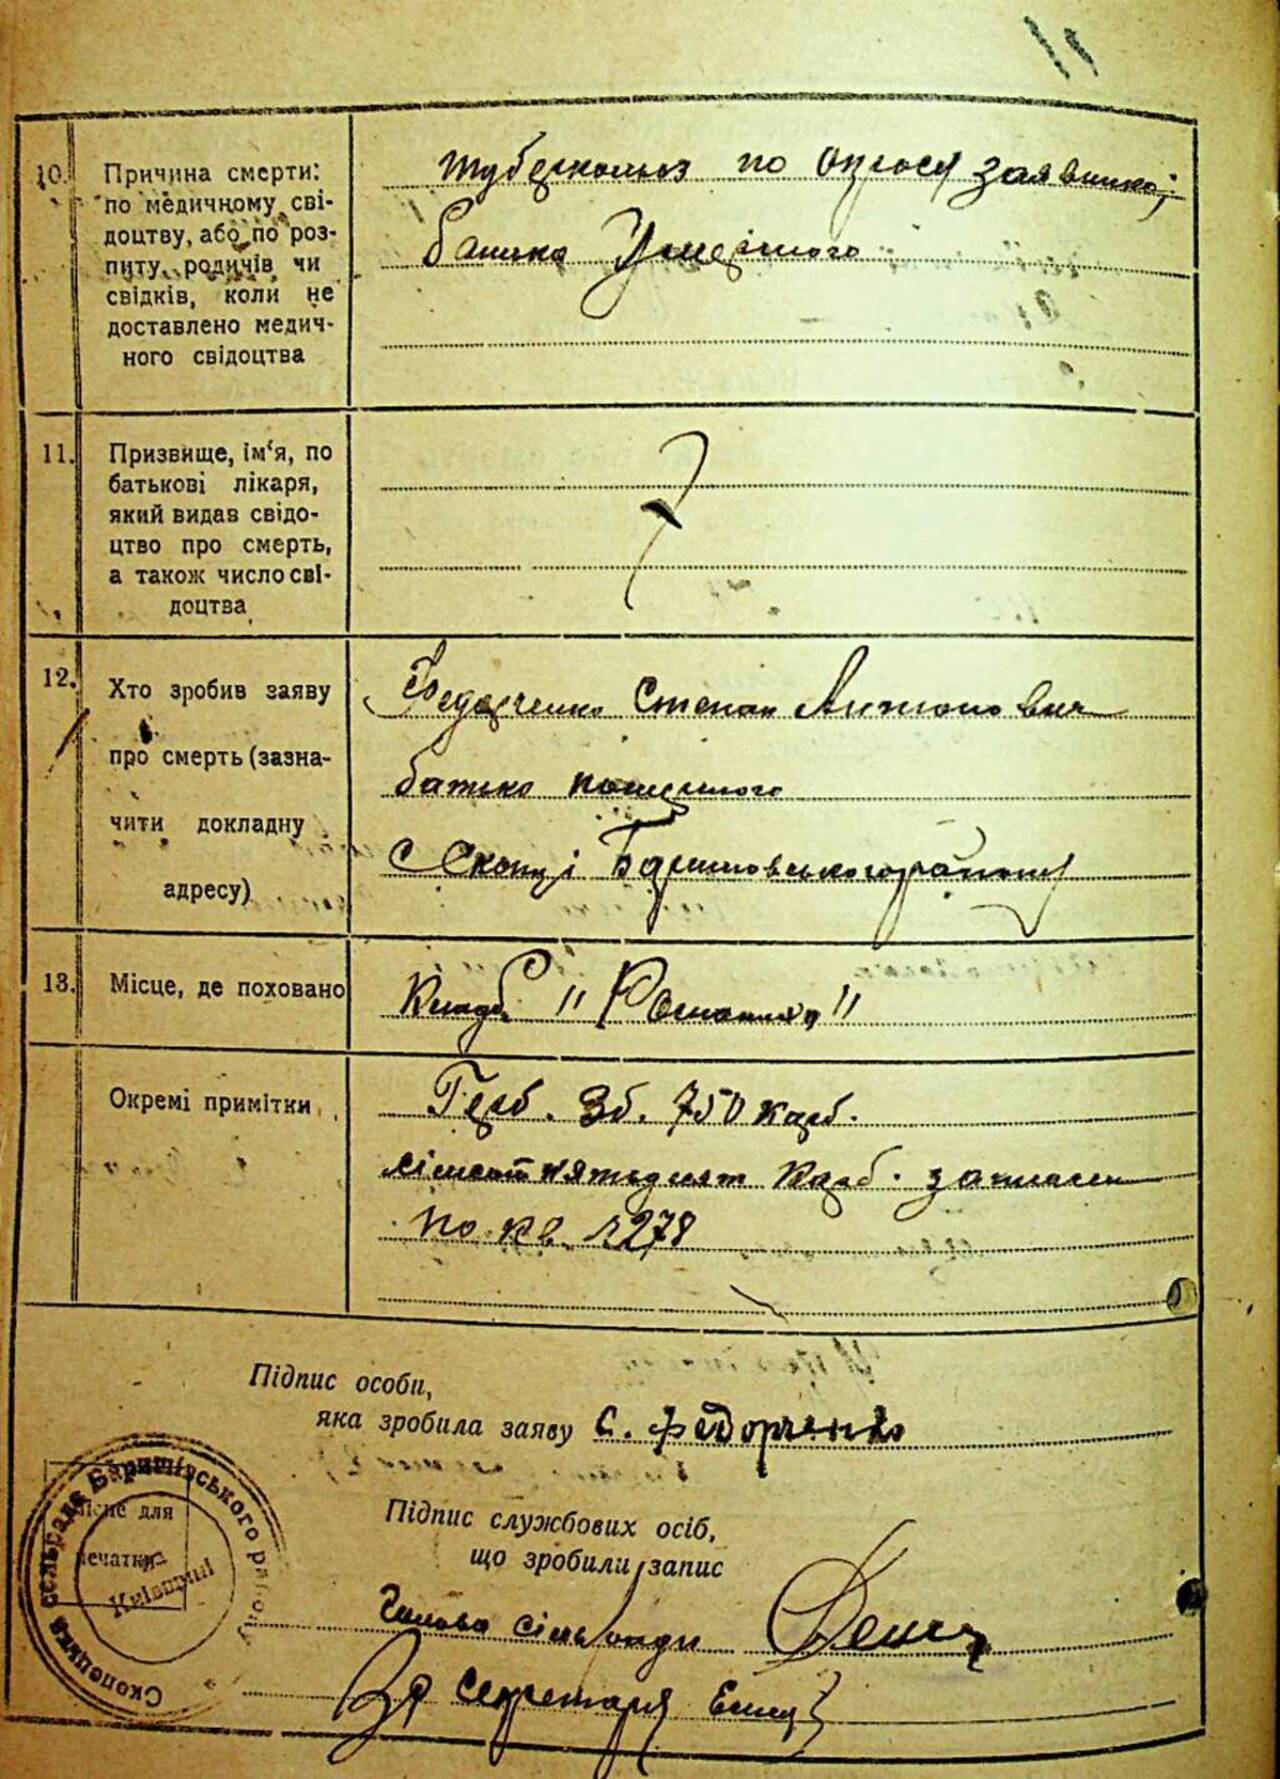 11
10. Причина смерти:
по медичному сві-
доцтву, або по роз-
питу родичів чи
свідків, коли не
доставлено медич-
ного свідоцтва
туберкольоз по опросу заявника;
батька Умершого
11. Призвище, ім‘я, по
батькові лікаря,
який видав свідо-
цтво про смерть,
а також число сві-
доцтва
12. Хто зробив заяву
про смерть (зазна-
чити докладну
адресу)
Федорченко Степан Антонович
батько
с Скопці Баришовського району
13. Місце, де поховано
Кладб.
Окремі примітки
Герб. Зб. 750 карб.
сімсот пятьдисят карб.
по кв. 1278
Підпис особи,
яка зробила заяву С. Федорченко
Підпис службових осіб,
що зробили запис
Голова сільради
Секретаря
Місце для
печатки
Скопецька сельрада Баришівського району
Київщині